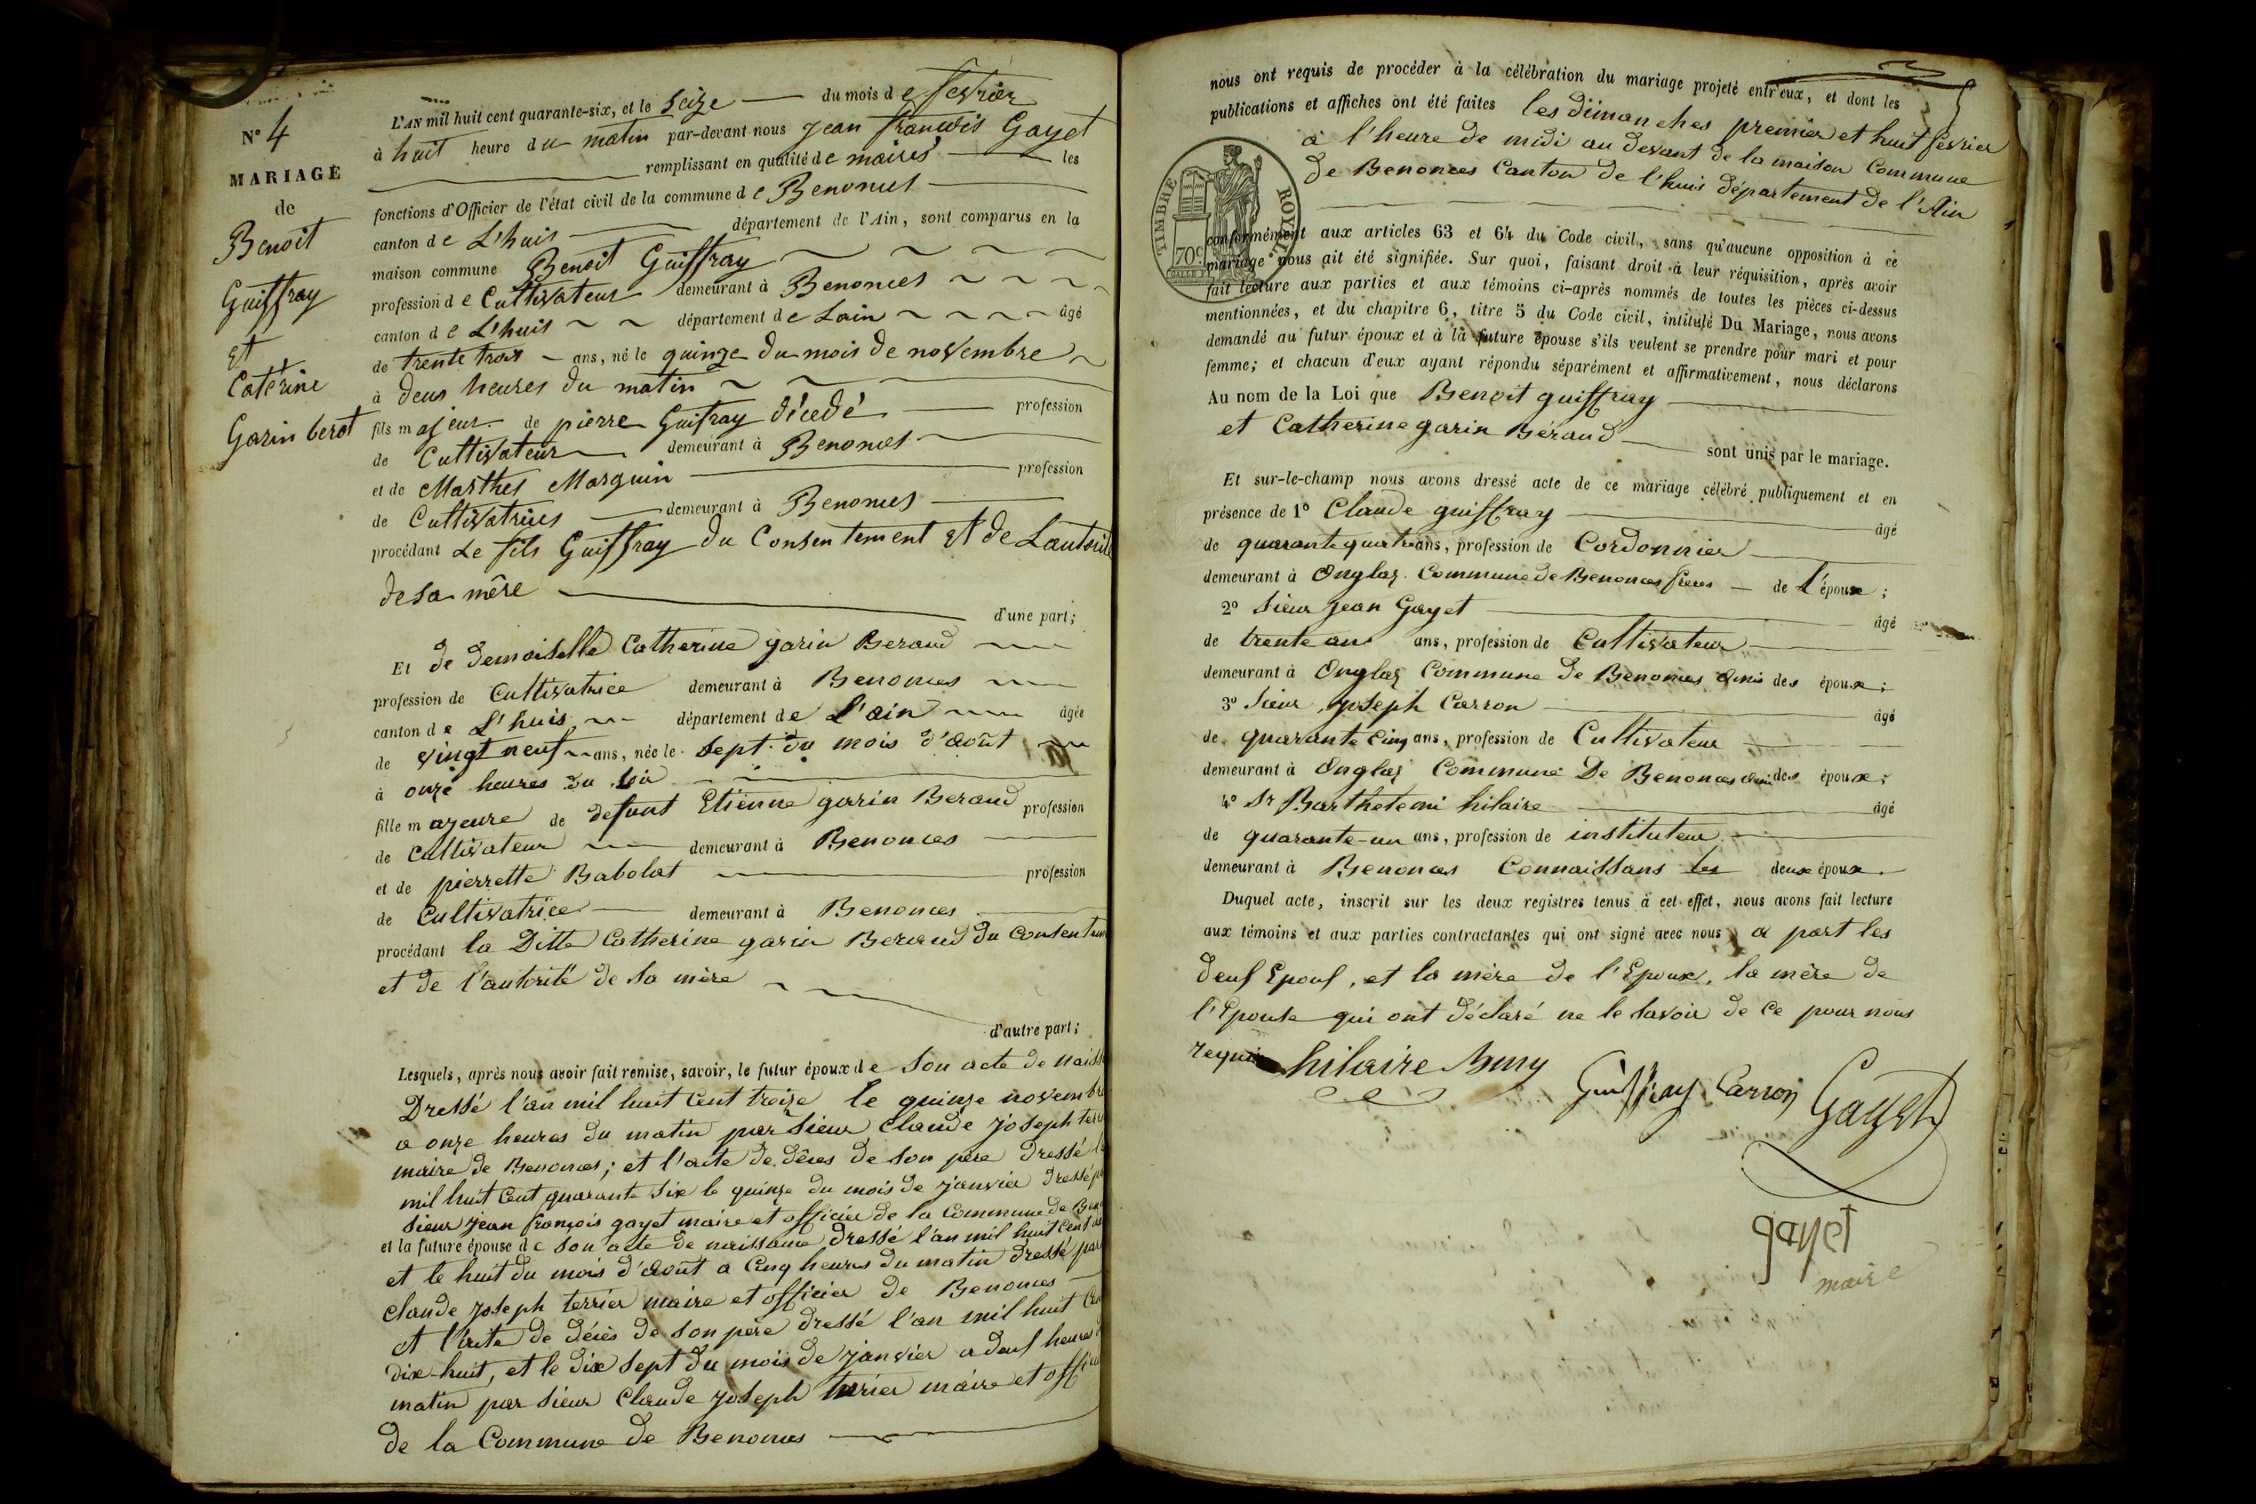 N° 4
MARIAGE
de
Benoit
Guiffray
et
Caterine
Garin berot
L'AN mil huit cent quarante-six, et le seize du mois de fevrier
à huit heure du matin par-devant nous jean francois Gayet
remplissant en qualité de maires les
fonctions d'Officier de l'état civil de la commune de Benonces
canton de L'huis département de l'Ain, sont comparus en la
maison commune Benoit Guiffray
profession de Cultivateur demeurant à Benonces
canton de L'huis département de Lain âgé
de trente trois ans, né le quinze du mois de novembre
à deux heures du matin
fils majeur de pierre Guifray décedé profession
de Cultivateur demeurant à Benonces
et de Marthes Marguin profession
de Cultivatrices demeurant à Benonces
procédant Le fils Guiffray du Consentement et de Lautorité
de sa mère
d'une part;
Et de demoiselle Catherine garin Beraud
profession de Cultivatrice demeurant à Benonces
canton de L'huis département de L'ain âgée
de vingt neuf ans, née le sept du mois d'août
à onze heures du soir
fille majeure de defunt Etienne garin Beraud profession
de Cultivateur demeurant à Benonces
et de pierrette Babolat profession
de Cultivatrice demeurant à Benonces
procédant la Ditte Catherine garin Beraud du consentem
et de l'autorité de sa mère
d'autre part;
Lesquels, après nous avoir fait remise, savoir, le futur époux de son acte de naiss
Dressé l'an mil huit cent treize le quinze novembre
a onze heures du matin par sieur Claude joseph terr
maire de Benonces; et l'acte de dêces de son père dressé l
mil huit cent quarante six le quinze du mois de janvier dressé p
sieur jean françois gayet maire et officier de la Commune de Ben
et la future épouse de son acte de naissance dressé l'an mil huit cent
et le huit du mois d'août a cinq heures du matin dressé par
Claude joseph terrier maire et officier de Benonces
et l'acte de décès de son père dressé l'an mil huit Ce
dix-huit, et le dix sept du mois de janvier a deux heures
matin par sieur Claude joseph terrier maire et offi
de la Commune de Benonces
nous ont requis de procéder à la célébration du mariage projeté entr'eux, et dont les
publications et affiches ont été faites les dimanches premier et huit février
à l'heure de midi au devant de la maison Commune
de Benonces Canton de l'huis département de l'Ain
TIMBRE ROYAL
70c
conformément aux articles 63 et 64 du Code civil, sans qu'aucune opposition à ce
mariage nous ait été signifiée. Sur quoi, faisant droit à leur réquisition, après avoir
fait lecture aux parties et aux témoins ci-après nommés de toutes les pièces ci-dessus
mentionnées, et du chapitre 6, titre 5 du Code civil, intitulé Du Mariage, nous avons
demandé au futur époux et à la future épouse s'ils veulent se prendre pour mari et pour
femme; et chacun d'eux ayant répondu séparément et affirmativement, nous déclarons
Au nom de la Loi que Benoit guiffray
et Catherine garin Béraud sont unis par le mariage.
Et sur-le-champ nous avons dressé acte de ce mariage célébré publiquement et en
présence de 1° Claude guiffray âgé
de quarante quatre ans, profession de Cordonnier
demeurant à Onglas Commune de Benonces frere de l'époux;
2° Sieur jean Gayet âgé
de trente an ans, profession de Cultivateur
demeurant à Onglas Commune de Benonces amis des époux;
3° Sieur joseph Carron âgé
de quarante cinq ans, profession de Cultivateur
demeurant à Onglas Commune De Benonces ami des époux;
4° Sr Barthelemi hilaire âgé
de quarante-un ans, profession de instituteur
demeurant à Benonces Connaissans les deux époux.
Duquel acte, inscrit sur les deux registres tenus à cet effet, nous avons fait lecture
aux témoins et aux parties contractantes qui ont signé avec nous a part les
deux Epoux, et la mère de l'Epoux, la mère de
l'Epouse qui ont déclaré ne le savoir de ce pour nous
requis
hilaire Guiffray Carron Gayet
gayet
maire